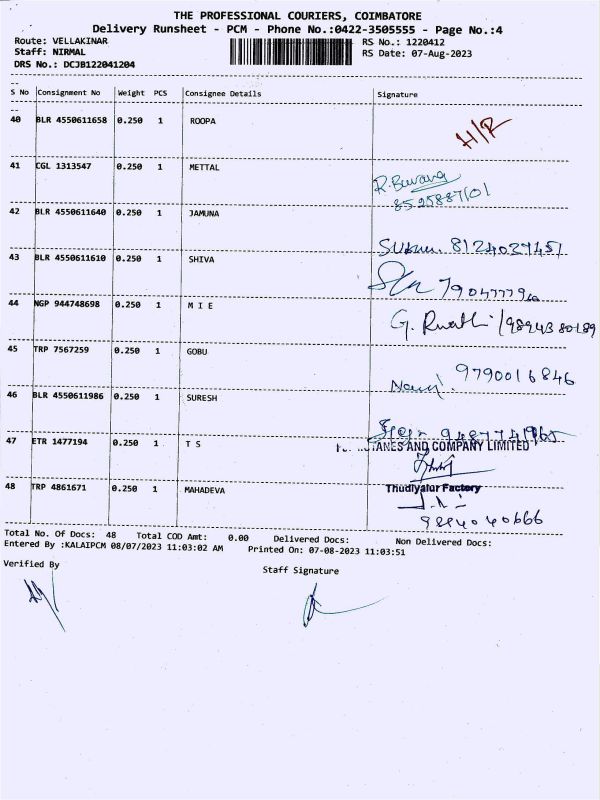 THE PROFESSIONAL COURIERS, COIMBATORE
Delivery Runsheet - PCM - Phone No.:0422-3505555 - Page No.:4
Route: VELLAKINAR RS No.: 1220412
Staff: NIRMAL RS Date: 07-Aug-2023
DRS No.: DCJB122041204
S No Consignment No Weight PCS Consignee Details Signature
40 BLR 4550611658 0.250 1 ROOPA H/R
41 CGL 1313547 0.250 1 METTAL
8525887101
42 BLR 4550611640 0.250 1 JAMUNA
8124029451
43 BLR 4550611610 0.250 1 SHIVA
44 NGP 944748698 0.250 1 M I E
45 TRP 7567259 0.250 1 GOBU
9790016846
46 BLR 4550611986 0.250 1 SURESH
47 ETR 1477194 0.250 1 T S
AND COMPANY LIMITED
48 TRP 4861671 0.250 1 MAHADEVA
Thudiyalur Factory
Total No. Of Docs: 48 Total COD Amt: 0.00 Delivered Docs: Non Delivered Docs:
Entered By :KALAIPCM 08/07/2023 11:03:02 AM Printed On: 07-08-2023 11:03:51
Verified By
Staff Signature